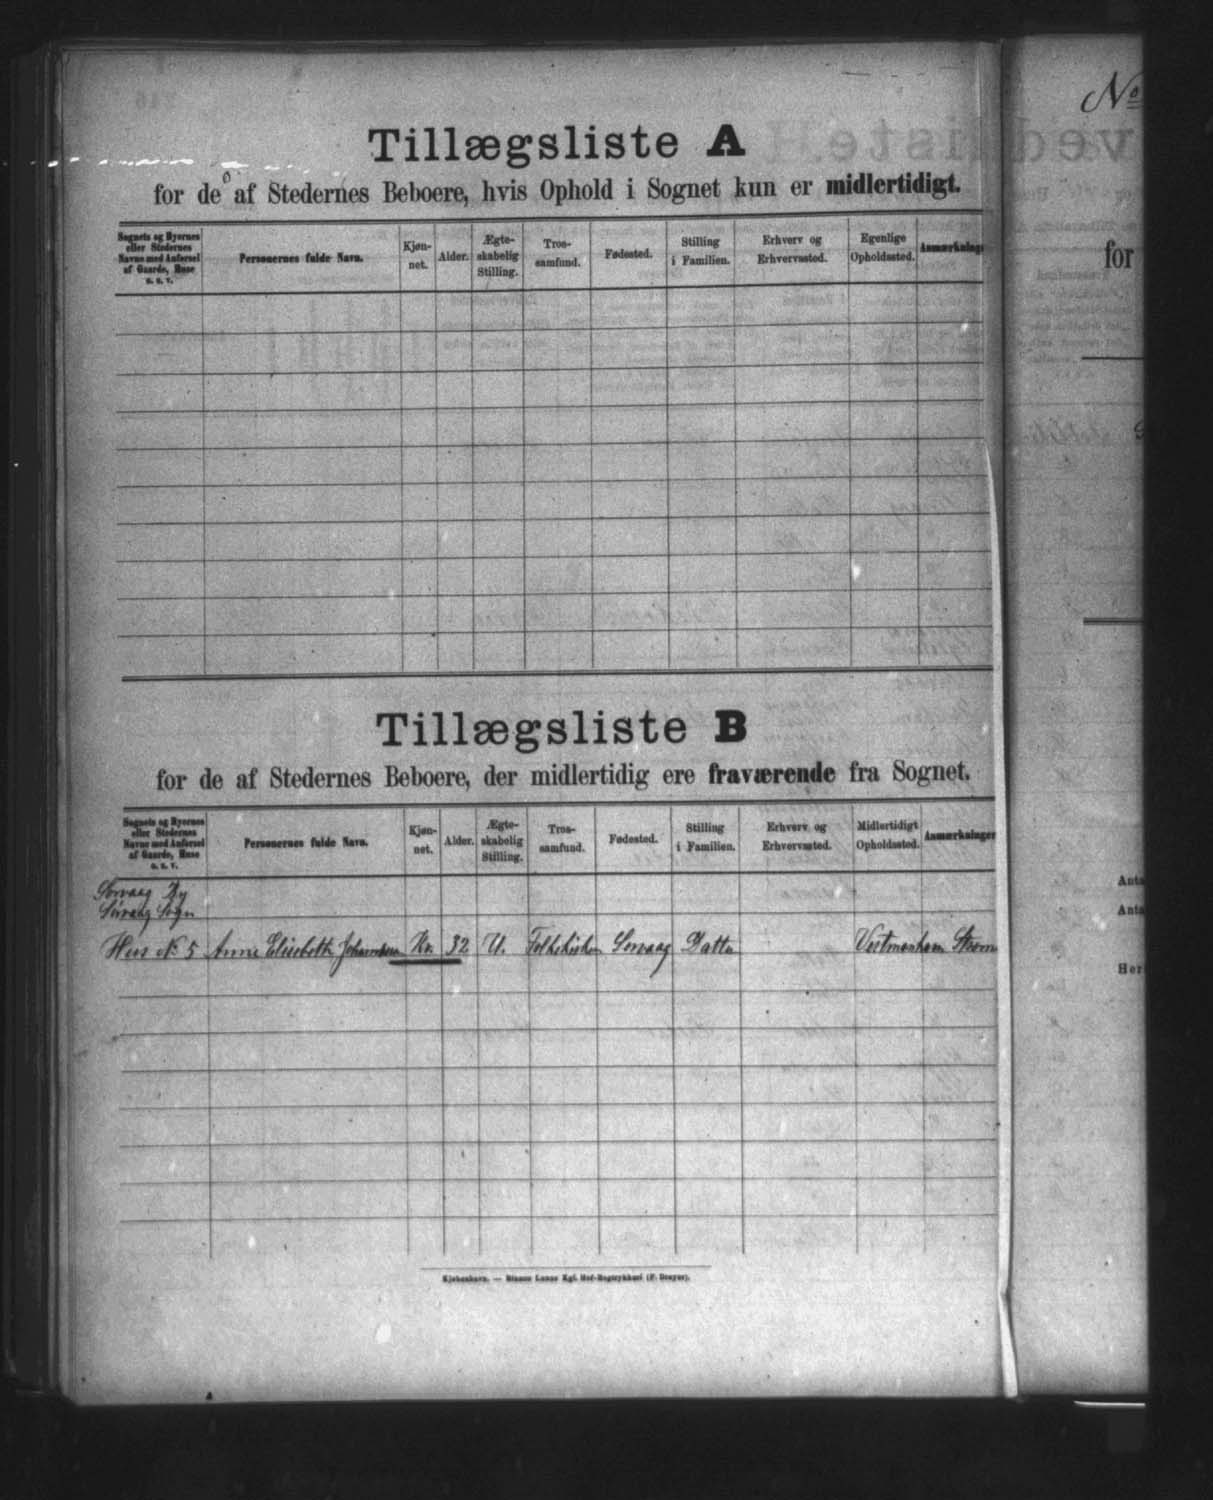 No
Tillægsliste A
for de af Stedernes Beboere, hvis Ophold i Sognet kun er midlertidigt.
for
Sognets og Byernes eller Stedernes Navne med Anførsel af Gaarde, Huse o. s. v.
Personernes fulde Navn.
Kjøn-net.
Alder.
Ægte-skabelig Stilling.
Tros-samfund.
Fødested.
Stilling i Familien.
Erhverv og Erhvervssted.
Egenlige Opholdssted.
Anmærkninger
Tillægsliste B
for de af Stedernes Beboere, der midlertidig ere fraværende fra Sognet.
Sognets og Byernes eller Stedernes Navne med Anførsel af Gaarde, Huse o. s. v.
Personernes fulde Navn.
Kjøn-net.
Alder.
Ægte-skabelig Stilling.
Tros-samfund.
Fødested.
Stilling i Familien.
Erhverv og Erhvervssted.
Midlertidigt Opholdssted.
Anmærkninger
Sørvaag By
Sørvaag Sogn
Hus No 5 Anne Elisabeth Johannesen Kv. 32 U. Folkekirken Sørvaag Datter Vestmanhavn Strømø
Anta
Anta
Her
Kjøbenhavn. — Bianco Lunos Kgl. Hof-Bogtrykkeri (F. Dreyer).